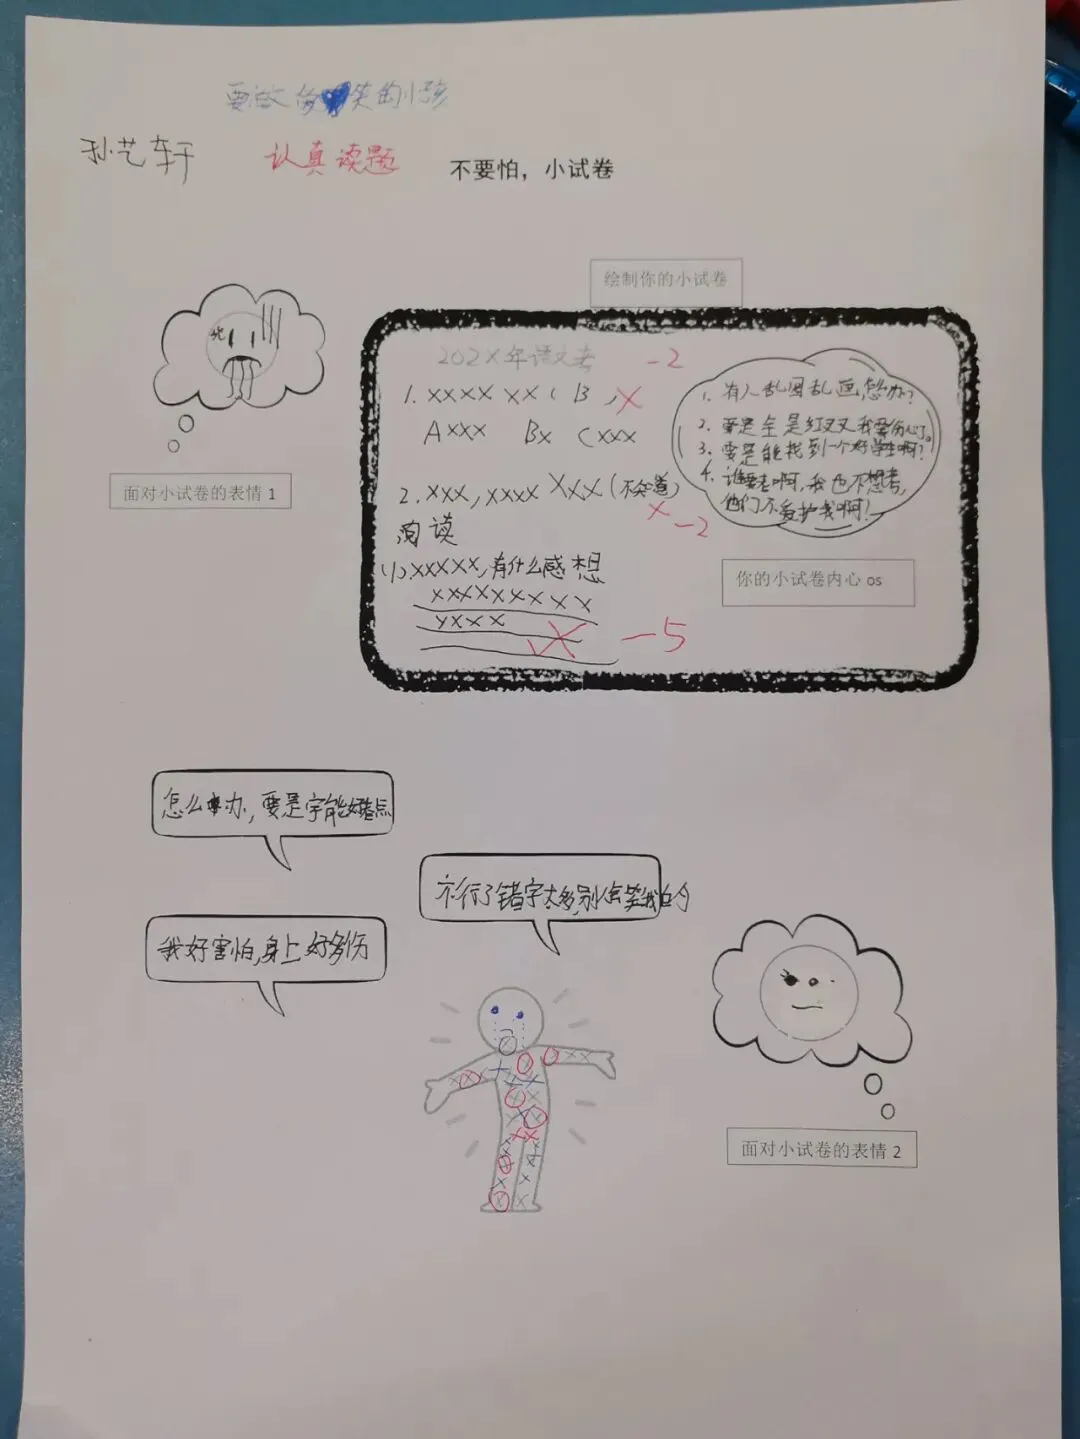 要做 的小孩
孙艺轩
认真读题
不要怕，小试卷
绘制你的小试卷
死
面对小试卷的表情 1
202X年语文考 -2
1. XXXX XX ( B ) X
A XXX BX C XXX
2. XXX, XXXX XXX (不知道)
X -2
阅读
(1). XXXXX, 有什么感想
XXXXXXXXX
XXXX
X -5
1. 有人乱图乱画怎办?
2. 要是全是红叉叉我要伤心了。
3. 要是能找到一个好学生啊?
4. 谁要考啊, 我也不想考,
他们不爱护我啊!
你的小试卷内心 os
怎么办, 要是字能好看点
不行了错字太多, 别人会笑我的
我好害怕, 身上好多伤
面对小试卷的表情 2